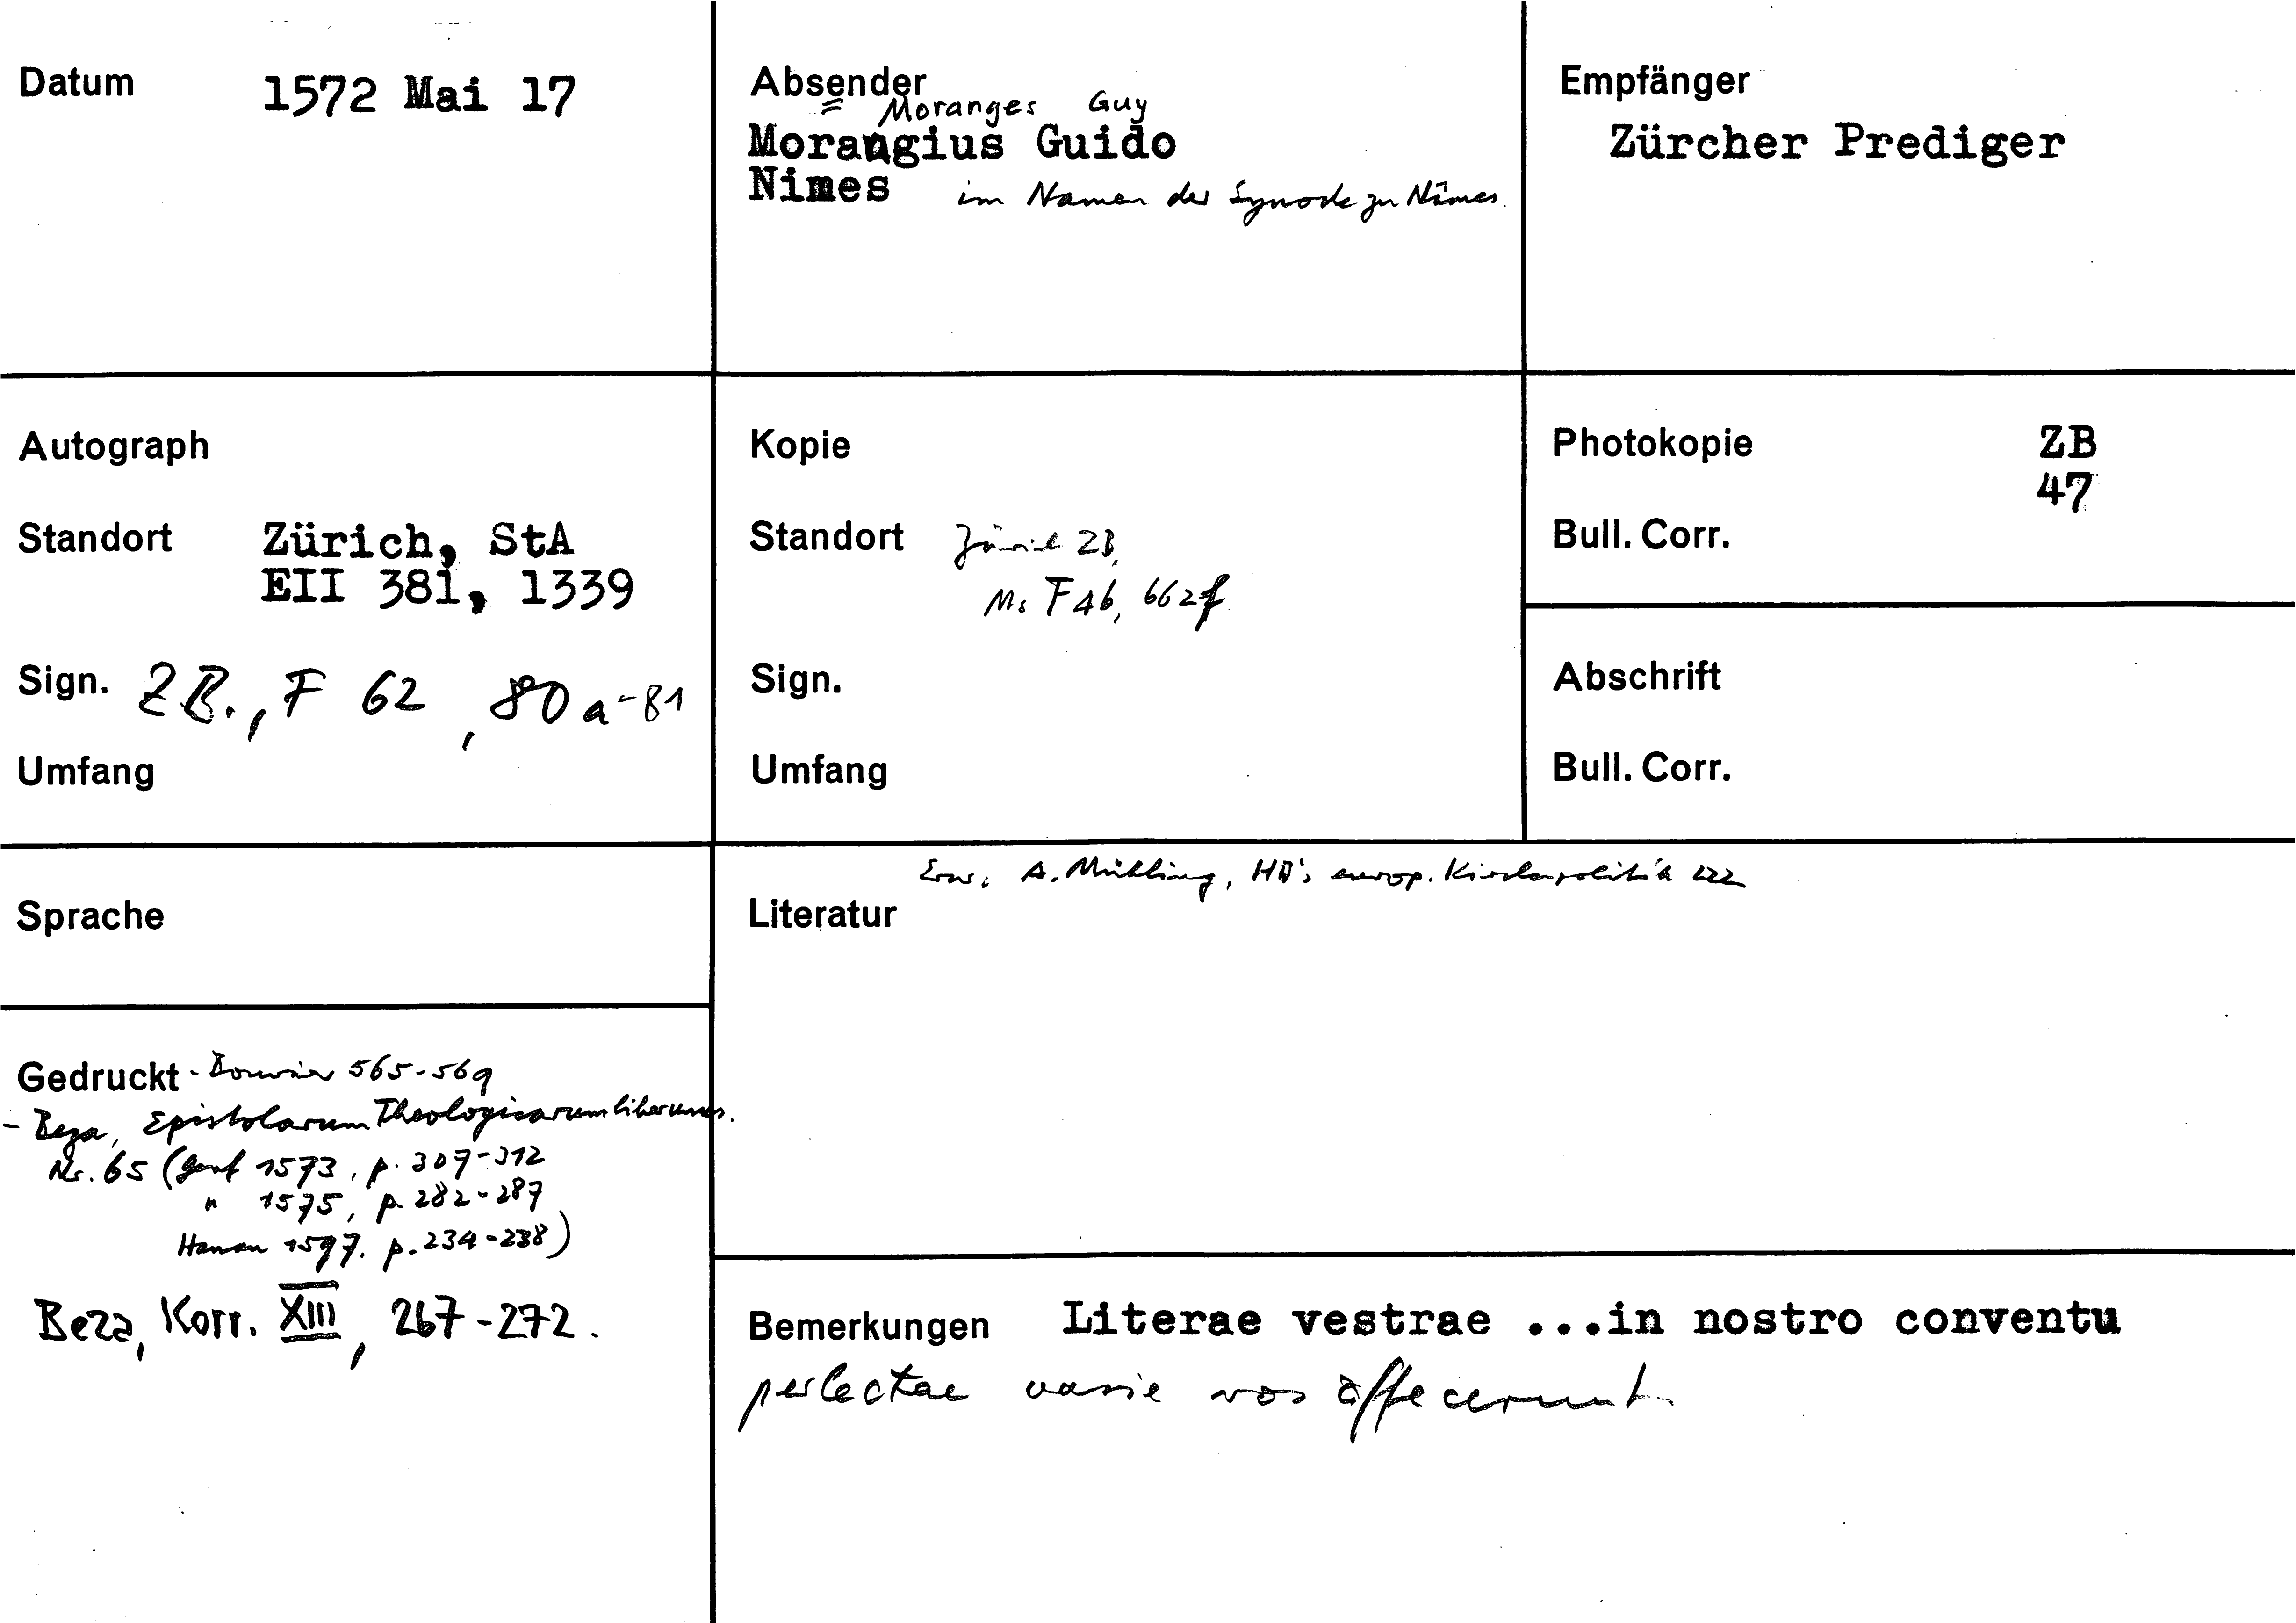 Datum 1572 Mai 17
Absender
= Moranges Guy
Morangius Guido
Nimes im Namen der Synode zu Nîmes.
Empfänger
Zürcher Prediger
Autograph
Standort Zürich, StA
EII 381, 1339
Sign. ZB., F 62, 80a-81
Umfang
Kopie
Standort Zürich ZB,
Ms F 46, 662f
Sign.
Umfang
Photokopie ZB
47
Bull. Corr.
Abschrift
Bull. Corr.
Sprache
Erw. A. Mühling, HB's europ. Kirchenpolitik 222
Literatur
Gedruckt - Bouvier 565-569
- Beza, Epistolarum Theologicarum liber unus.
Nr. 65 (Genf 1573, p. 307-312
" 1575, p. 282-287
Hanau 1597, p. 234-238)
Beza, Korr. XIII, 267-272.
Bemerkungen Literae vestrae ...in nostro conventu
perlectae varie nos affecerunt